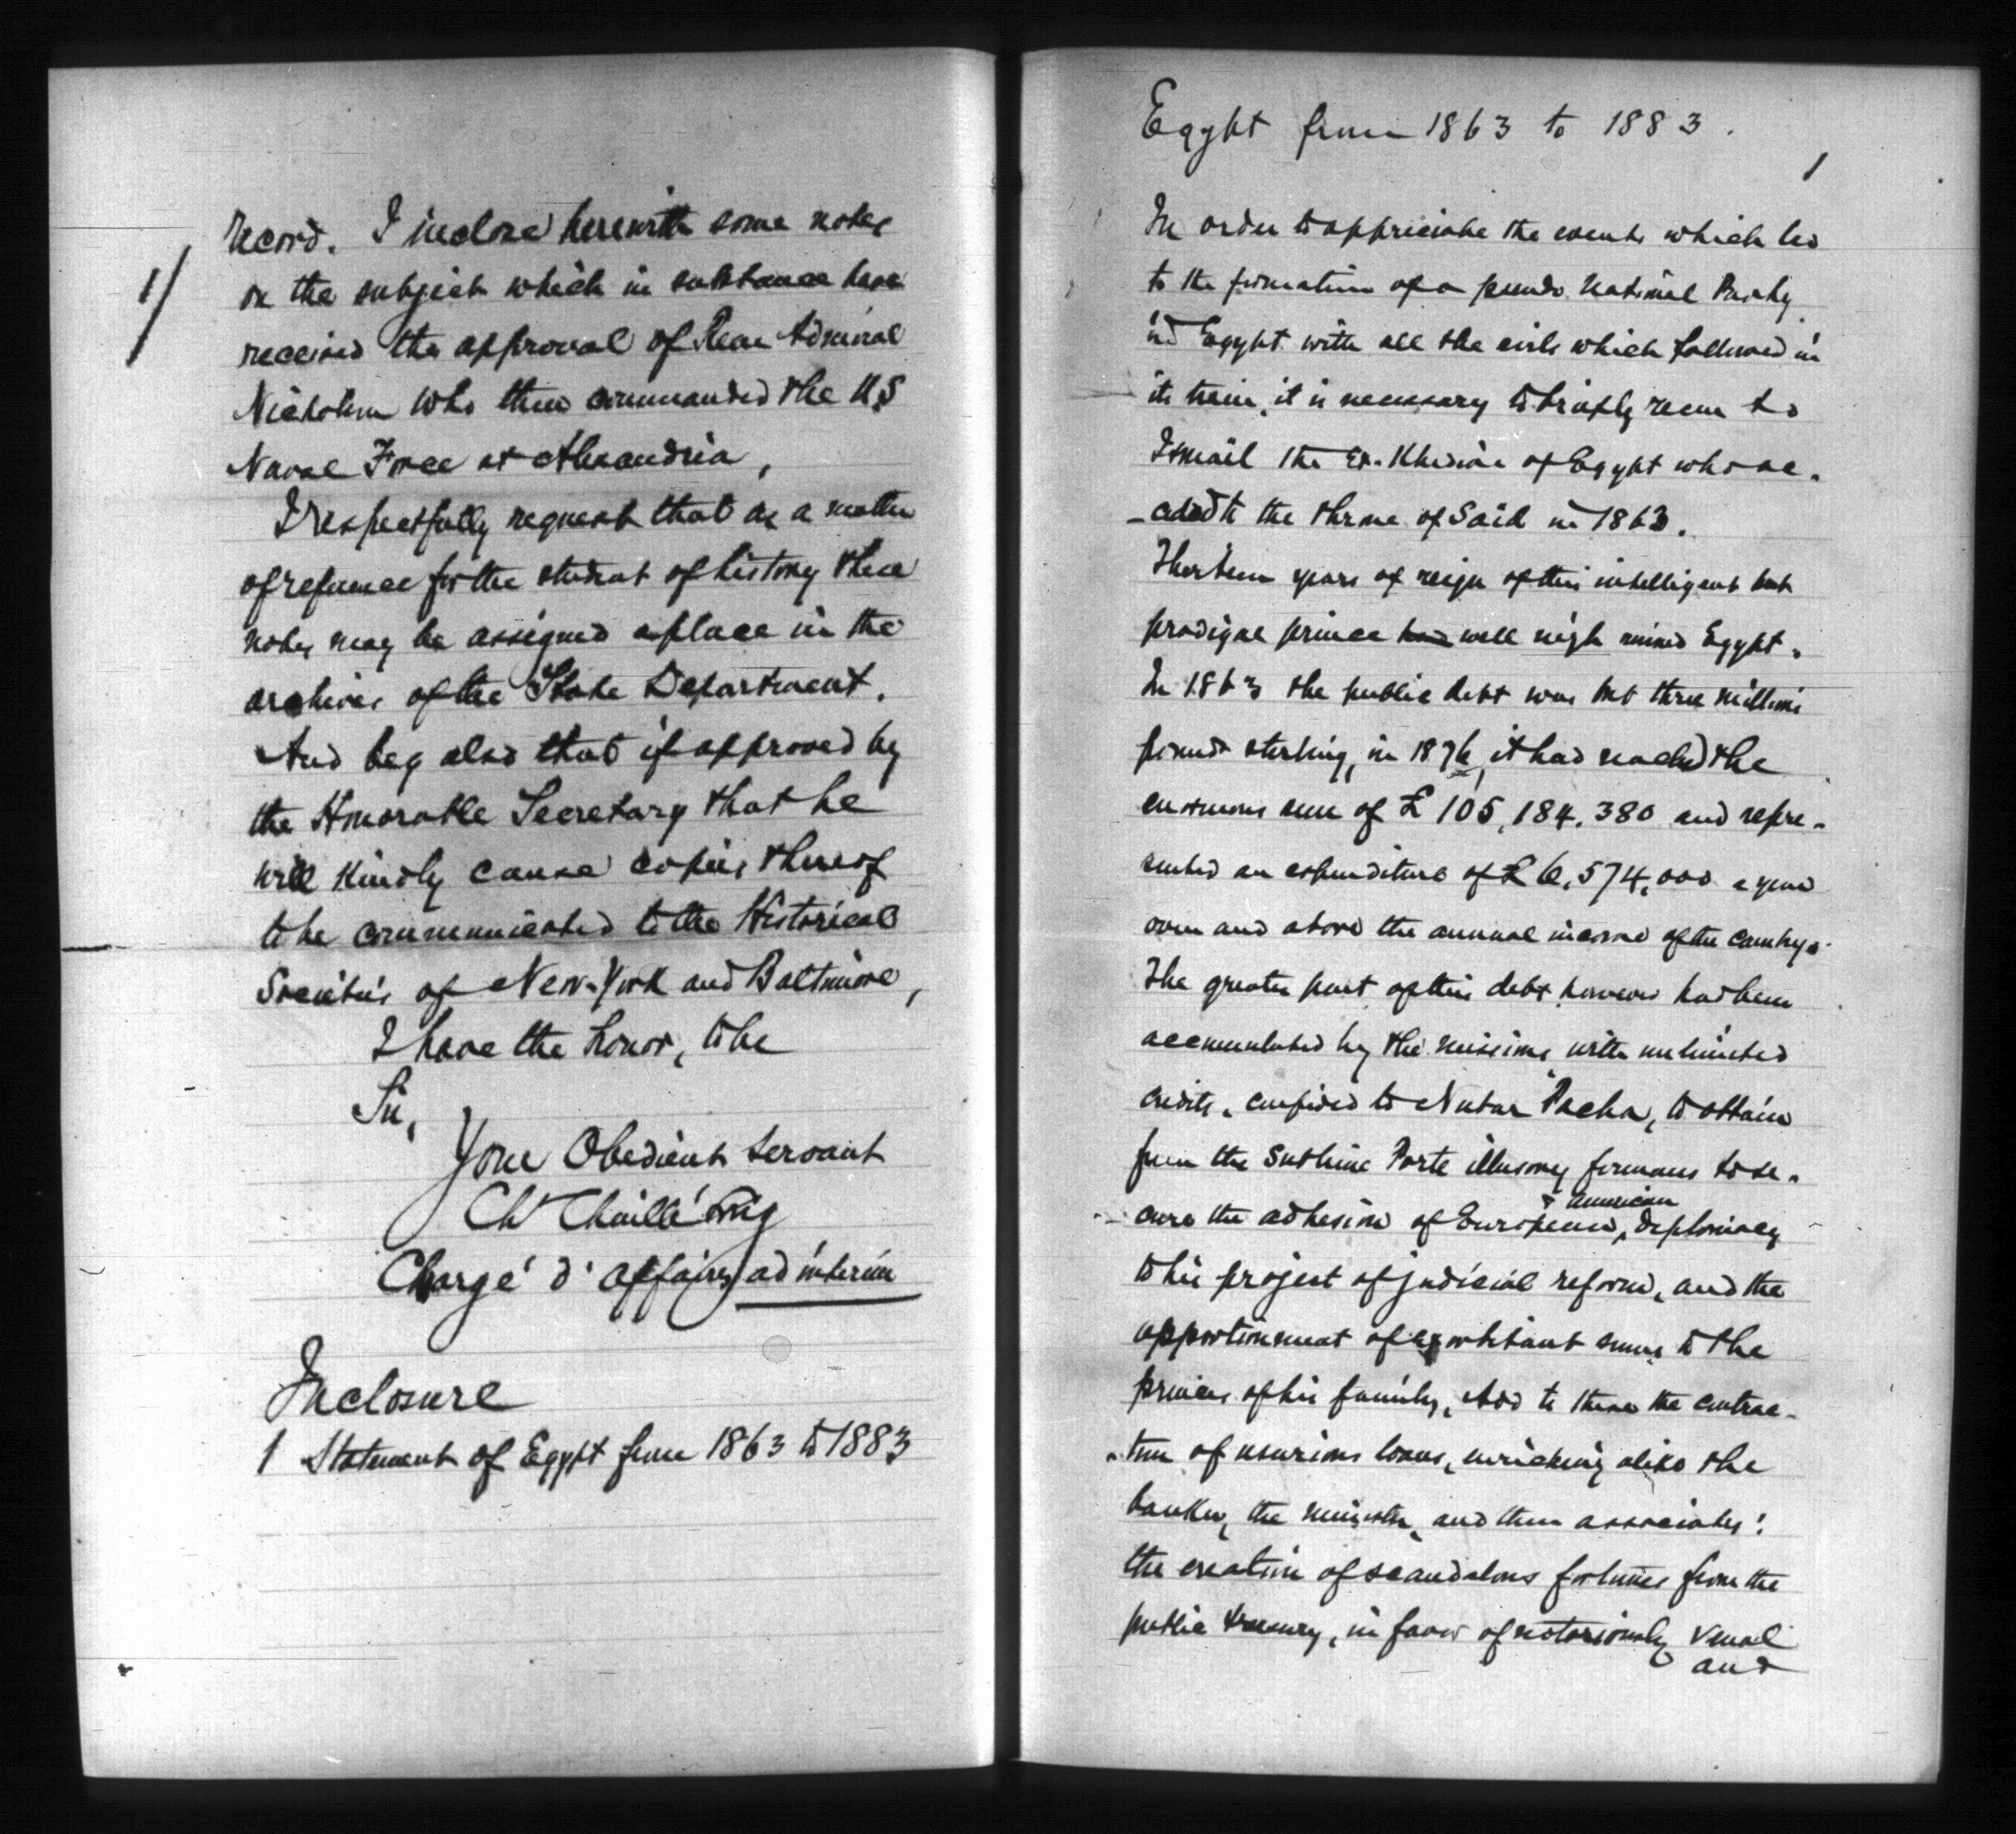 1/
record. I inclose herewith some notes
on the subject which in substance have
received the approval of Rear Admiral
Nicholson who then commanded the U.S
Naval Force at Alexandria,
I respectfully request that as a matter
of reference for the student of history these
notes may be assigned a place in the
archives of the State Department.
And beg also that if approved by
the Honorable Secretary that he
will kindly cause copies thereof
to be communicated to the Historical
Societies of New-York and Baltimore,
I have the honor, to be
Sir,
Your Obedient Servant
Ch Chaillé Long
Chargé d'affaires ad interim
Inclosure
1 Statement of Egypt from 1863 to 1883
Egypt from 1863 to 1883.
1
In order to appreciate the events which led
to the formation of a pseudo National Party
in Egypt with all the evils which followed in
its train, it is necessary to briefly recur to
Ismail the Ex-Khedive of Egypt who ac-
-ceded to the throne of Said in 1863.
Thirteen years of reign of this intelligent but
prodigal prince had well nigh ruined Egypt.
In 1863 the public debt was but three millions
pounds sterling, in 1876, it had reached the
enormous sum of £ 105,184,380 and repre-
sented an expenditure of £ 6,574,000 a year
over and above the annual income of the country.
The greater part of this debt however had been
accumulated by the missions with unlimited
credits, confided to Nubar Pacha, to obtain
from the Sublime Porte illusory firmans to se-
cure the adhesion of European & American diplomacy
to his project of judicial reform, and the
apportionment of exorbitant sums to the
princes of his family, Add to these the contrac-
-tion of usurious loans, enriching alike the
banker, the minister, and their associates:
the creation of scandalous fortunes from the
public treasury, in favor of notoriously venal
and